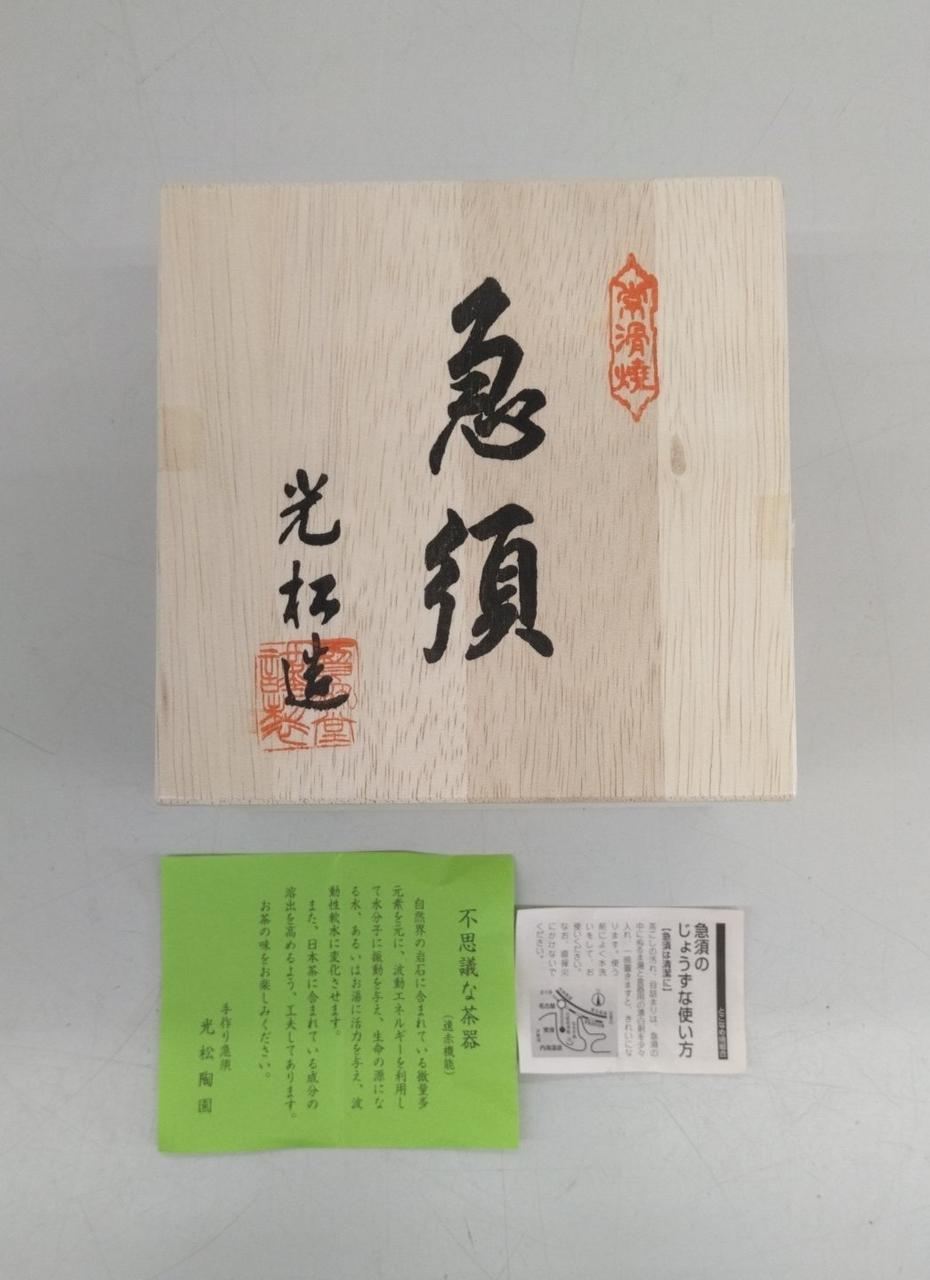 常滑燒
急須
光松造
不思議な茶器
(遠赤機能)
自然界の岩石に含まれている微量多
元素を元に、波動エネルギーを利用し
て水分子に振動を与え、生命の源にな
る水、あるいはお湯に活力を与え、波
動性軟水に変化させます。
また、日本茶に含まれている成分の
溶出を高めるよう、工夫してあります。
お茶の味をお楽しみください。
手作り急須
光松陶園
急須の
じょうずな使い方
【急須は清潔に】
茶こしの汚れ、目詰まりは、急須の
中にぬるま湯と食器用の漂白剤を少々
入れ、一晩置きますと、きれいにな
ります。使う
前によく水洗
いをして、お
使いください。
なお、直接火
にかけないで
ください。
名古屋
常滑